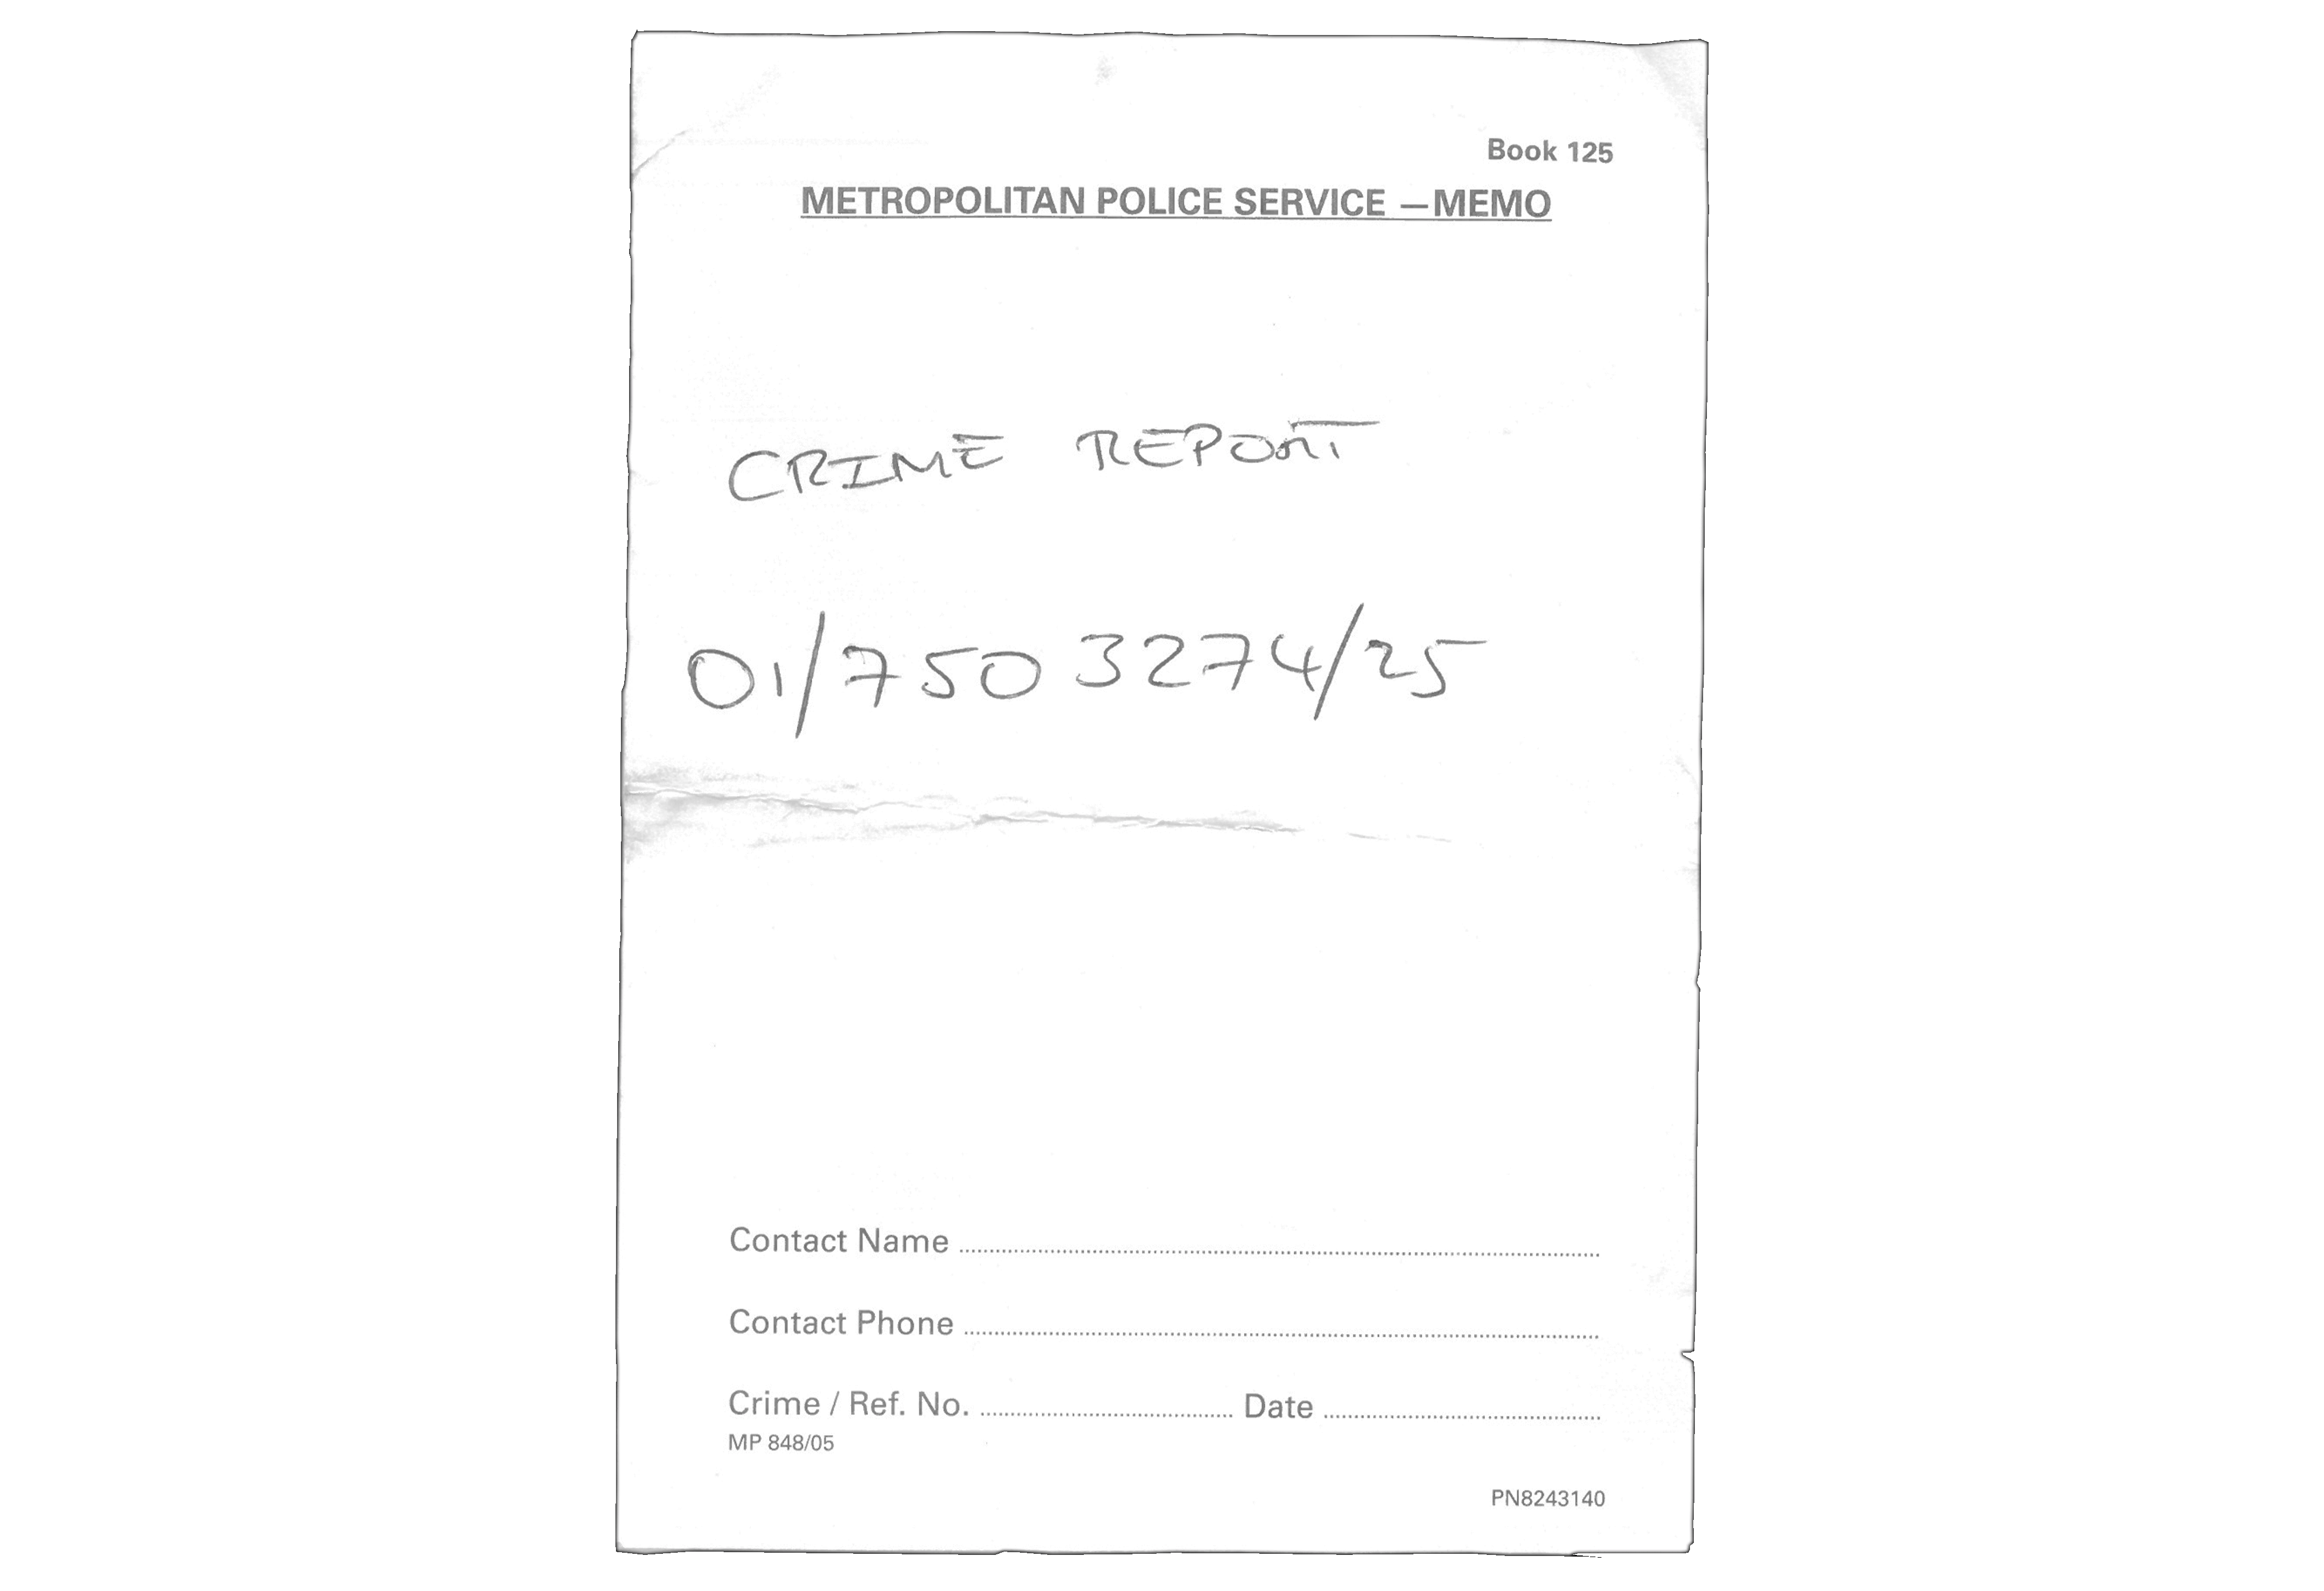 Book 125
METROPOLITAN POLICE SERVICE — MEMO
CRIME REPORT
01/7503274/25
Contact Name
Contact Phone
Crime / Ref. No. Date
MP 848/05
PN8243140